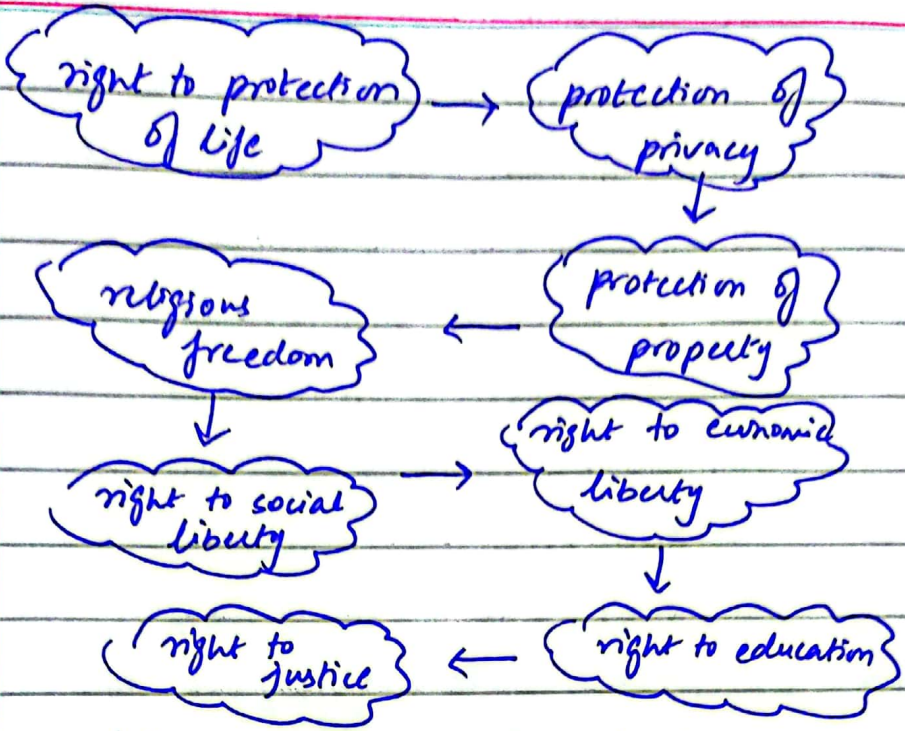 right to protection
of life
protection of
privacy
protection of
property
religious
freedom
right to social
liberty
right to economic
liberty
right to education
right to
justice